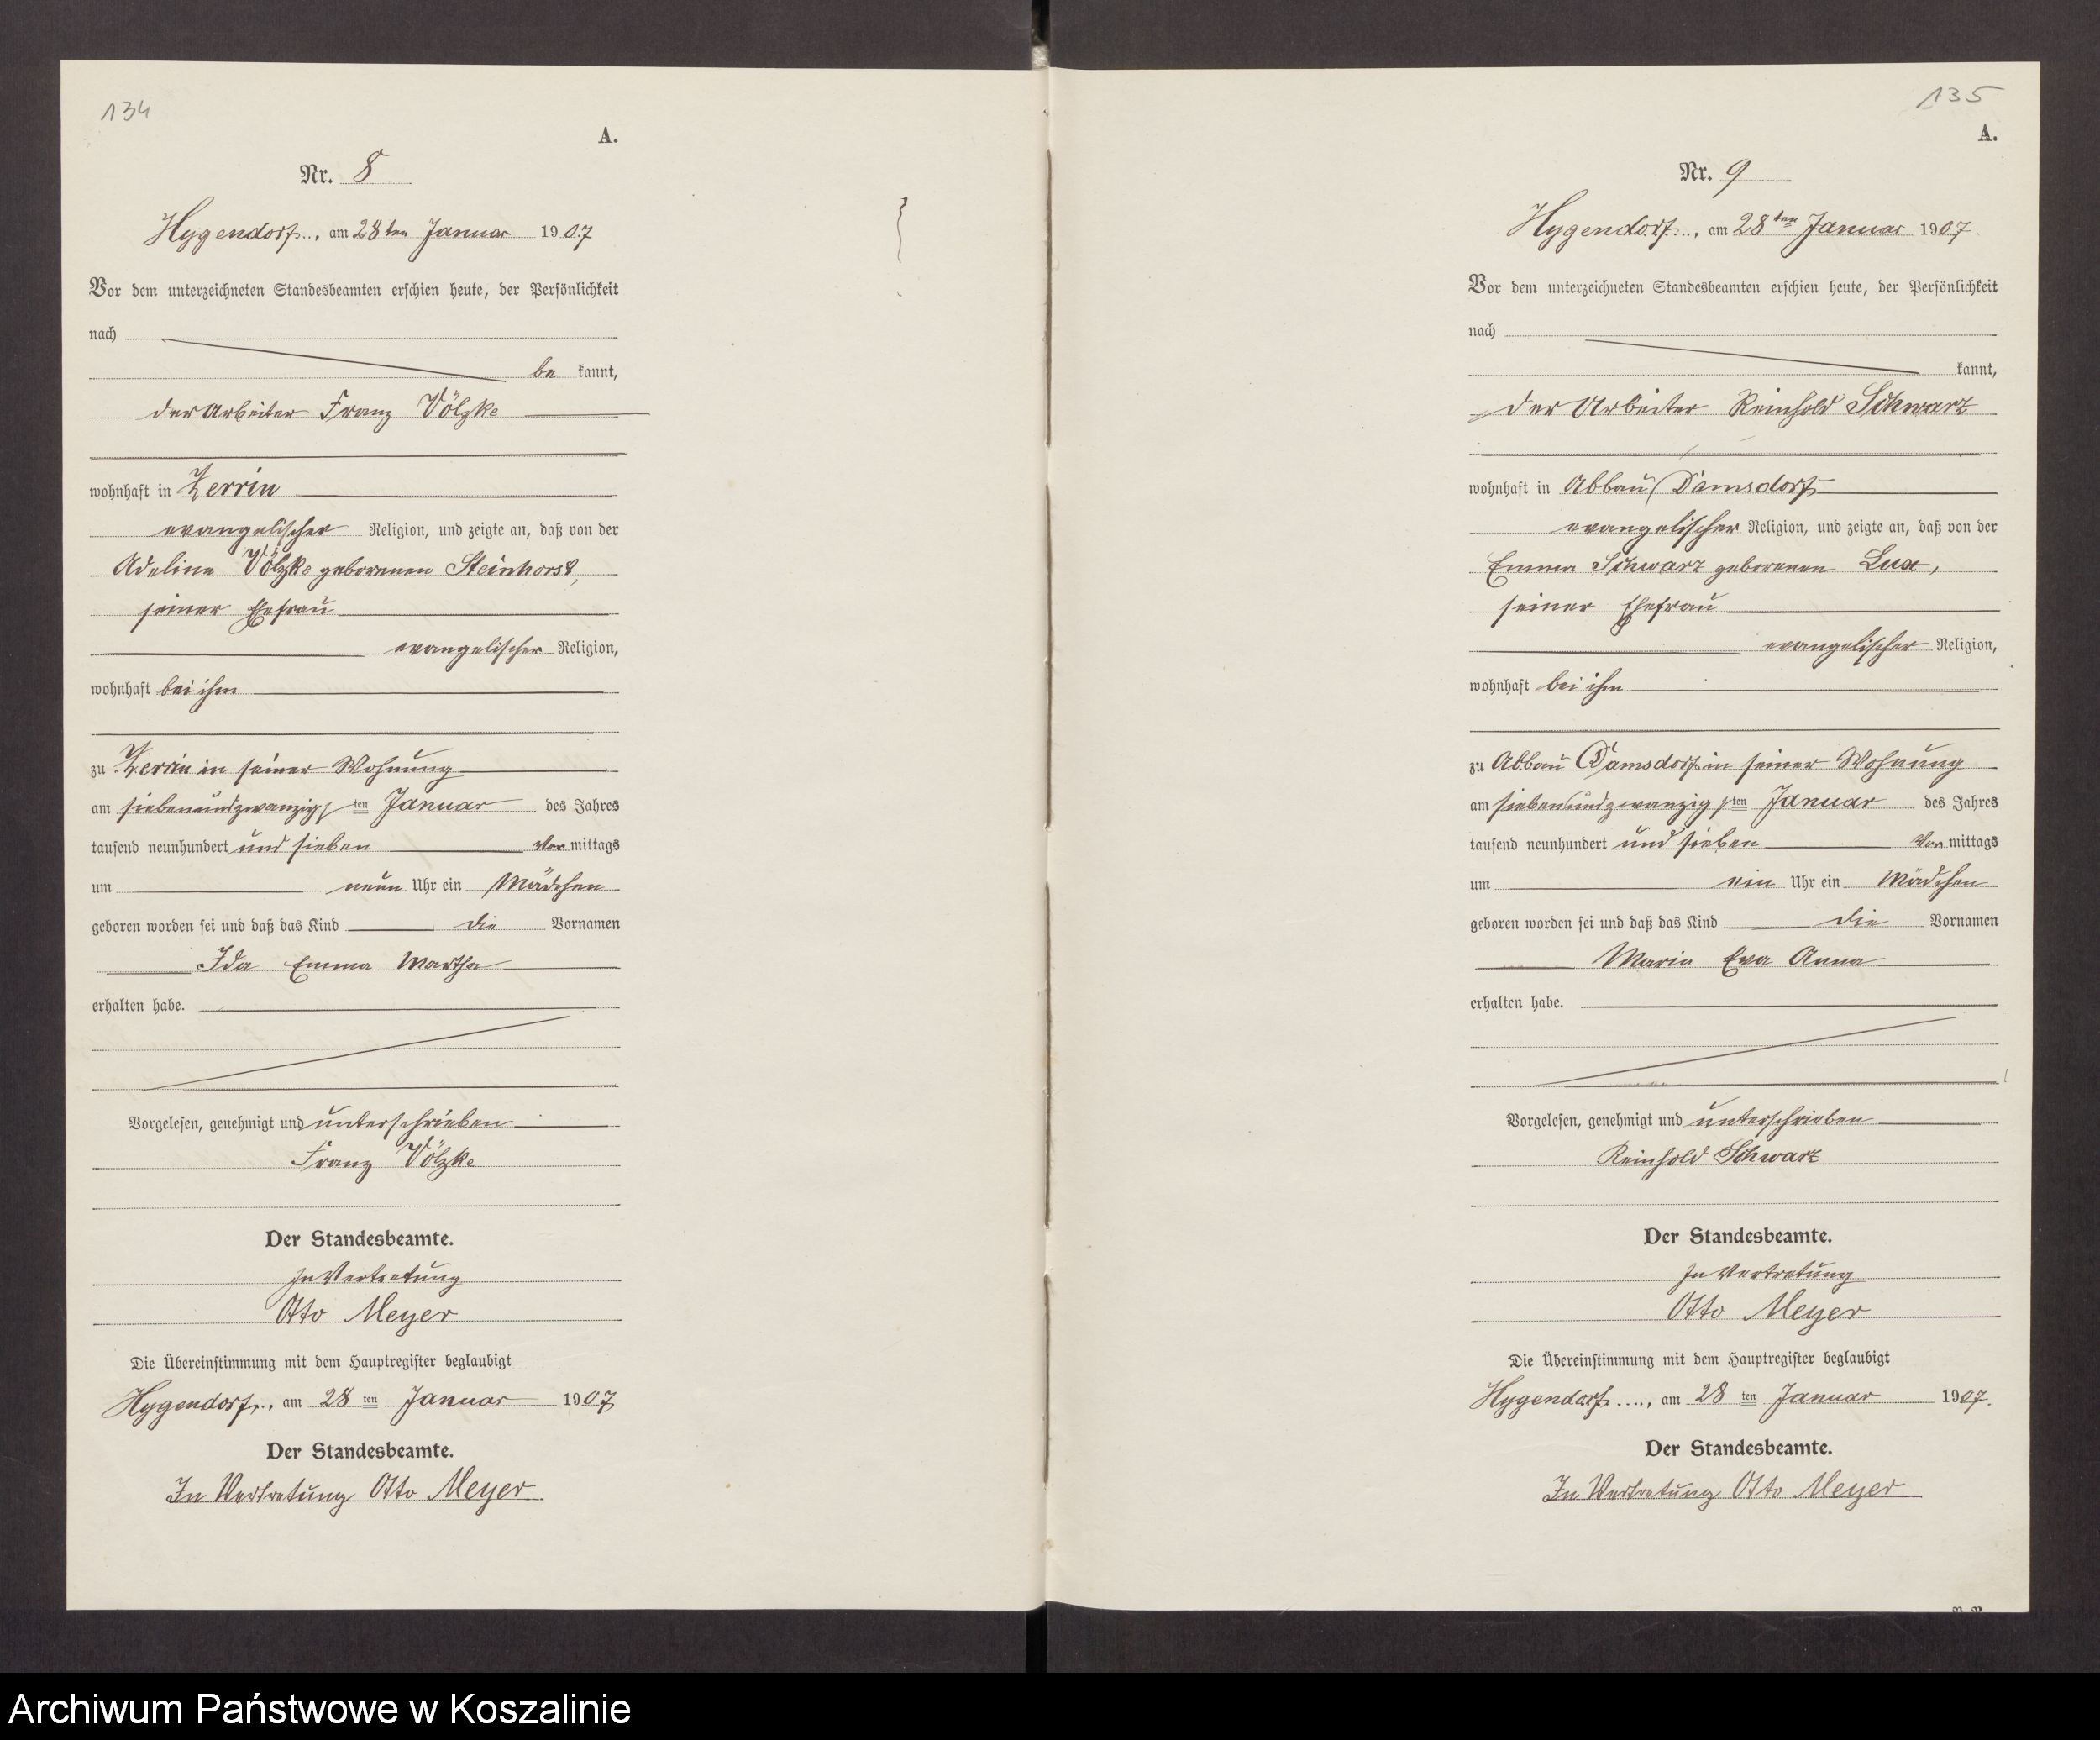 134
A.
Nr. 8
Hygendorf, am 28ten Januar 1907
Vor dem unterzeichneten Standesbeamten erschien heute, der Persönlichkeit
nach
be kannt,
der Arbeiter Franz Völzke
wohnhaft in Zerrin
evangelischer Religion, und zeigte an, daß von der
Adeline Völzke geborenen Steinhorst,
seiner Ehefrau
evangelischer Religion,
wohnhaft bei ihm
zu Zerrin in seiner Wohnung
am siebenundzwanzigsten Januar des Jahres
tausend neunhundert und sieben Vormittags
um neun Uhr ein Mädchen
geboren worden sei und daß das Kind die Vornamen
Ida Emma Martha
erhalten habe.
Vorgelesen, genehmigt und unterschrieben
Franz Völzke
Der Standesbeamte.
In Vertretung
Otto Meyer
Die Übereinstimmung mit dem Hauptregister beglaubigt
Hygendorf, am 28ten Januar 1907
Der Standesbeamte.
In Vertretung Otto Meyer
135
A.
Nr. 9
Hygendorf, am 28ten Januar 1907
Vor dem unterzeichneten Standesbeamten erschien heute, der Persönlichkeit
nach
kannt,
der Arbeiter Reinhold Schwarz
wohnhaft in Abbau Damsdorf
evangelischer Religion, und zeigte an, daß von der
Emma Schwarz geborenen Lux,
seiner Ehefrau
evangelischer Religion,
wohnhaft bei ihm
zu Abbau Damsdorf in seiner Wohnung
am siebenundzwanzigsten Januar des Jahres
tausend neunhundert und sieben Vormittags
um ein Uhr ein Mädchen
geboren worden sei und daß das Kind die Vornamen
Maria Eva Anna
erhalten habe.
Vorgelesen, genehmigt und unterschrieben
Reinhold Schwarz
Der Standesbeamte.
In Vertretung
Otto Meyer
Die Übereinstimmung mit dem Hauptregister beglaubigt
Hygendorf, am 28ten Januar 1907.
Der Standesbeamte.
In Vertretung Otto Meyer
Archiwum Państwowe w Koszalinie